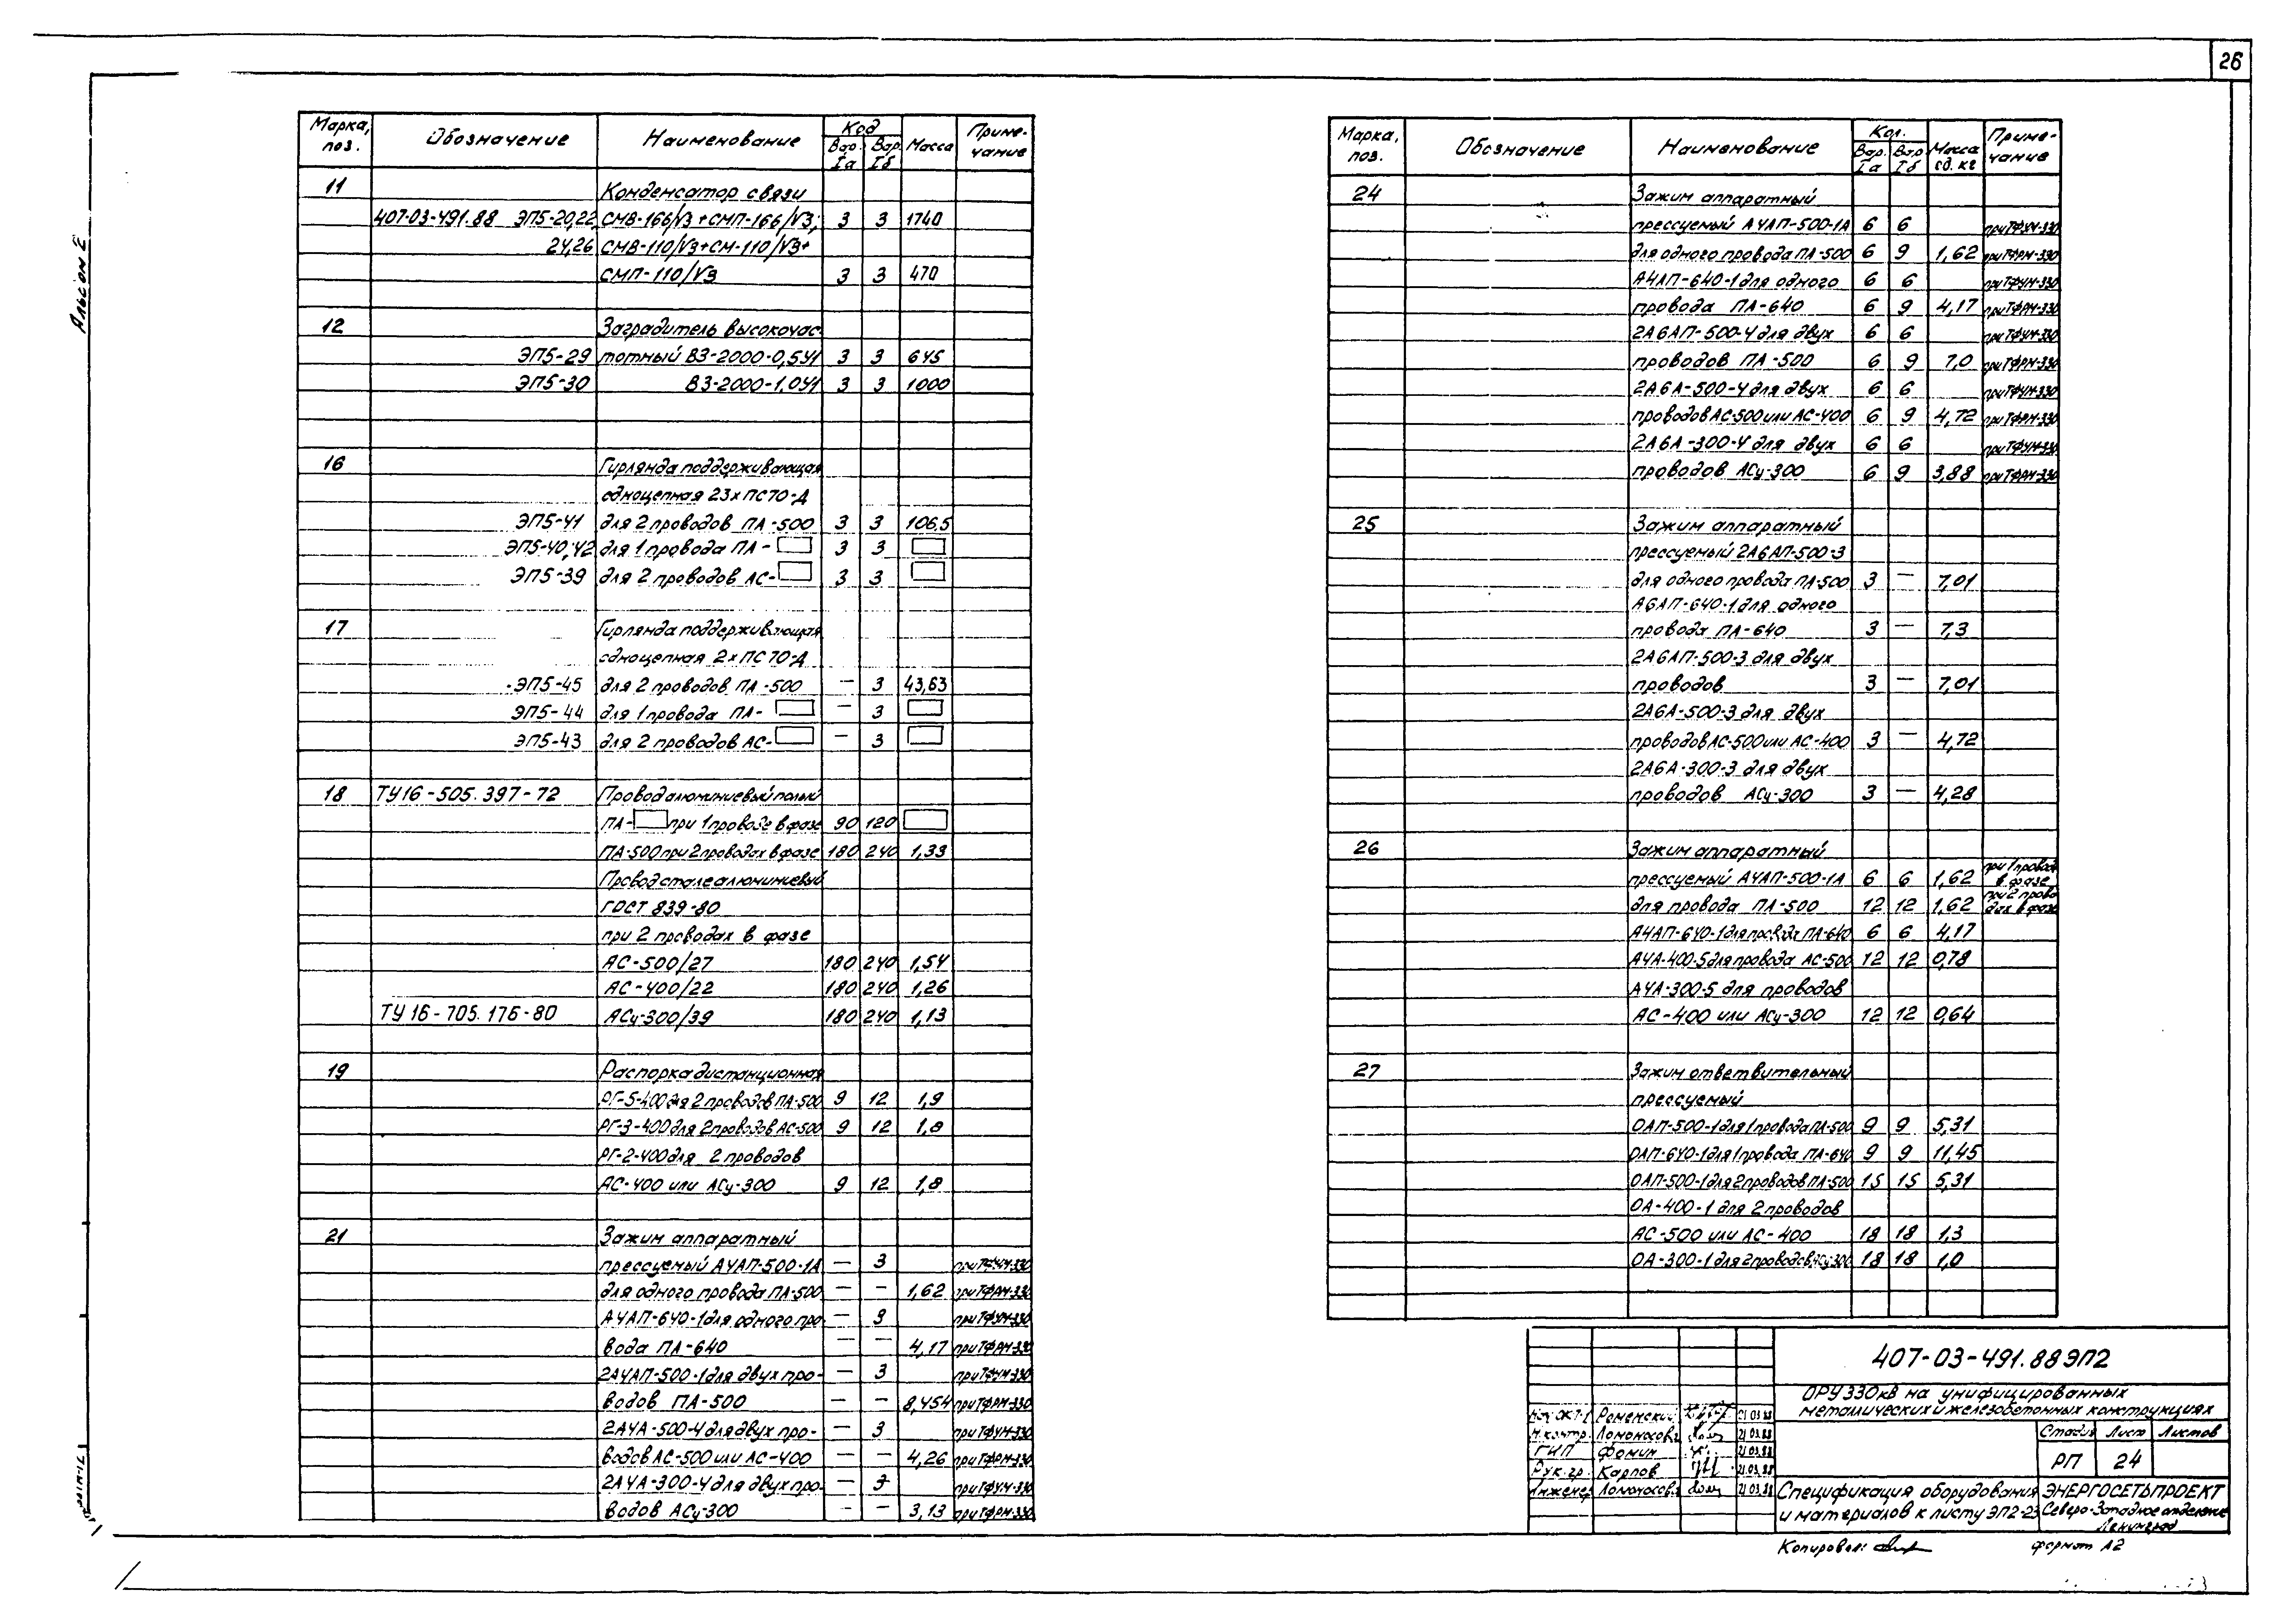 26
Альбом 2
Марка, поз. Обозначение Наименование Код Вар. Iа Вар. Iб Масса Приме-чание
11 Конденсатор связи
407-03-491.88 ЭП5-20,22, СМВ-166/√3+СМП-166/√3; 3 3 1740
24,26 СМВ-110/√3+СМ-110/√3+
СМП-110/√3 3 3 470
12 Заградитель высокочас
ЭП5-29 тотный ВЗ-2000-0,5У1 3 3 645
ЭП5-30 ВЗ-2000-1,0У1 3 3 1000
16 Гирлянда поддерживающая
одноцепная 23хПС70-Д
ЭП5-41 для 2 проводов ПА-500 3 3 106,5
ЭП5-40,42 для 1 провода ПА- 3 3
ЭП5-39 для 2 проводов АС- 3 3
17 Гирлянда поддерживающая
одноцепная 2хПС70-Д
ЭП5-45 для 2 проводов ПА-500 — 3 43,63
ЭП5-44 для 1 провода ПА- — 3
ЭП5-43 для 2 проводов АС- — 3
18 ТУ16-505.397-72 Провод алюминиевый полый
ПА- при 1 проводе в фазе 90 120
ПА-500 при 2 проводах в фазе 180 240 1,33
Провод сталеалюминиевый
ГОСТ 839-80
при 2 проводах в фазе
АС-500/27 180 240 1,54
АС-400/22 180 240 1,26
ТУ16-705.176-80 АСу-300/39 180 240 1,13
19 Распорка дистанционная
РГ-5-400 для 2 проводов ПА-500 9 12 1,9
РГ-3-400 для 2 проводов АС-500 9 12 1,8
РГ-2-400 для 2 проводов
АС-400 или АСу-300 9 12 1,8
21 Зажим аппаратный
прессуемый А4АП-500-1А — 3 при ТФУМ-330
для одного провода ПА-500 — — 1,62 при ТФРМ-330
А4АП-640-1 для одного про- — 3 при ТФУМ-330
вода ПА-640 — — 4,17 при ТФРМ-330
2А4АП-500-1 для двух про- — 3 при ТФУМ-330
водов ПА-500 — — 8,454 при ТФРМ-330
2А4А-500-4 для двух про- — 3 при ТФУМ-330
водов АС-500 или АС-400 — — 4,26 при ТФРМ-330
2А4А-300-4 для двух про- — 3 при ТФУМ-330
водов АСу-300 — — 3,13 при ТФРМ-330
Марка, поз. Обозначение Наименование Кол. Вар. Iа Вар. Iб Масса ед. кг Приме-чание
24 Зажим аппаратный
прессуемый А4АП-500-1А 6 6 при ТФУМ-330
для одного провода ПА-500 6 9 1,62 при ТФРМ-330
А4АП-640-1 для одного 6 6 при ТФУМ-330
провода ПА-640 6 9 4,17 при ТФРМ-330
2А6АП-500-4 для двух 6 6 при ТФУМ-330
проводов ПА-500 6 9 7,0 при ТФРМ-330
2А6А-500-4 для двух 6 6 при ТФУМ-330
проводов АС-500 или АС-400 6 9 4,72 при ТФРМ-330
2А6А-300-4 для двух 6 6 при ТФУМ-330
проводов АСу-300 6 9 3,88 при ТФРМ-330
25 Зажим аппаратный
прессуемый 2А6АП-500-3
для одного провода ПА-500 3 — 7,01
А6АП-640-1 для одного
провода ПА-640 3 — 7,3
2А6АП-500-3 для двух
проводов 3 — 7,01
2А6А-500-3 для двух
проводов АС-500 или АС-400 3 — 4,72
2А6А-300-3 для двух
проводов АСу-300 3 — 4,28
26 Зажим аппаратный
прессуемый А4АП-500-1А 6 6 1,62 при 1 провод в фазе
для провода ПА-500 12 12 1,62 при 2 прово дах в фазе
А4АП-640-1 для провода ПА-640 6 6 4,17
А4А-400-5 для провода АС-500 12 12 0,78
А4А-300-5 для проводов
АС-400 или АСу-300 12 12 0,64
27 Зажим ответвительный
прессуемый
ОАП-500-1 для 1 провода ПА-500 9 9 5,31
ОАП-640-1 для 1 провода ПА-640 9 9 11,45
ОАП-500-1 для 2 проводов ПА-500 15 15 5,31
ОА-400-1 для 2 проводов
АС-500 или АС-400 18 18 1,3
ОА-300-1 для 2 проводов АСу-300 18 18 1,0
407-03-491.88 ЭП2
ОРУ 330кВ на унифицированных
металических и железобетонных конструкциях
Нач.ОКП-1 Роменский 21.03.88
Н.контр. Ломоносова 21.03.88
ГИП Фомин 21.03.88
Рук.гр. Карпов 21.03.88
Инженер Ломоносова 21.03.88
Стадия Лист Листов
РП 24
Спецификация оборудования
и материалов к листу ЭП2-23
ЭНЕРГОСЕТЬПРОЕКТ
Северо-Западное отделение
Ленинград
Копировал:
формат А2